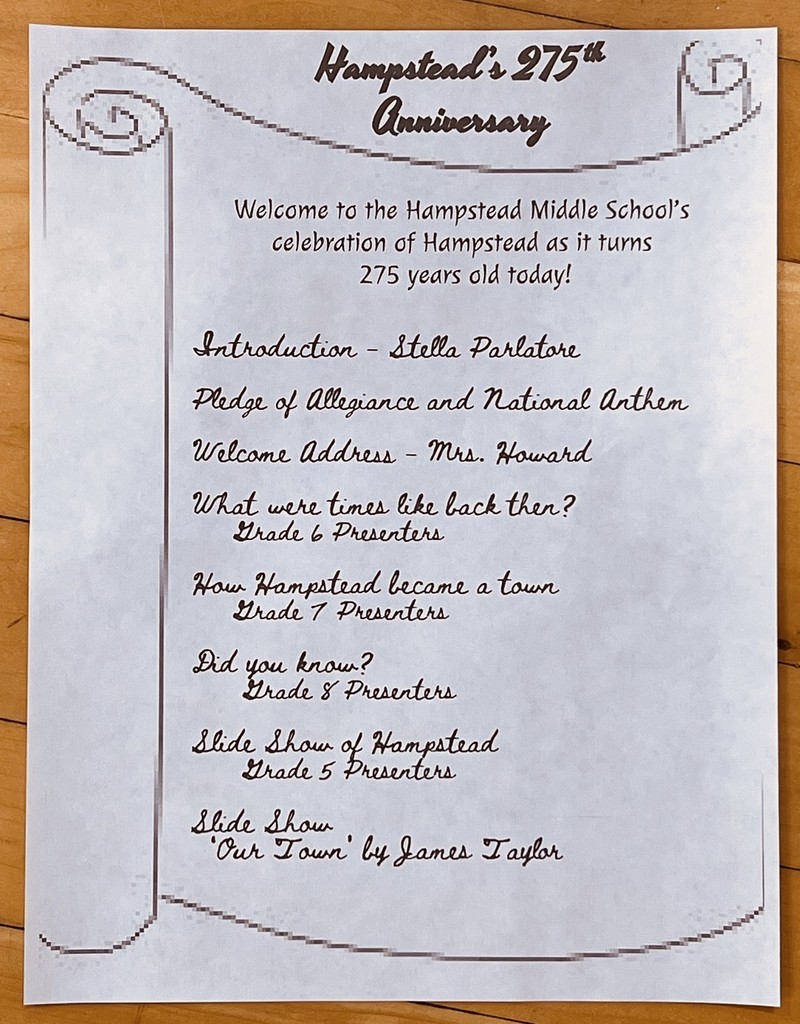 Hampstead's 275th
Anniversary
Welcome to the Hampstead Middle School's
celebration of Hampstead as it turns
275 years old today!
Introduction - Stella Parlatore
Pledge of Allegiance and National Anthem
Welcome Address - Mrs. Howard
What were times like back then?
Grade 6 Presenters
How Hampstead became a town
Grade 7 Presenters
Did you know?
Grade 8 Presenters
Slide Show of Hampstead
Grade 5 Presenters
Slide Show
'Our Town' by James Taylor